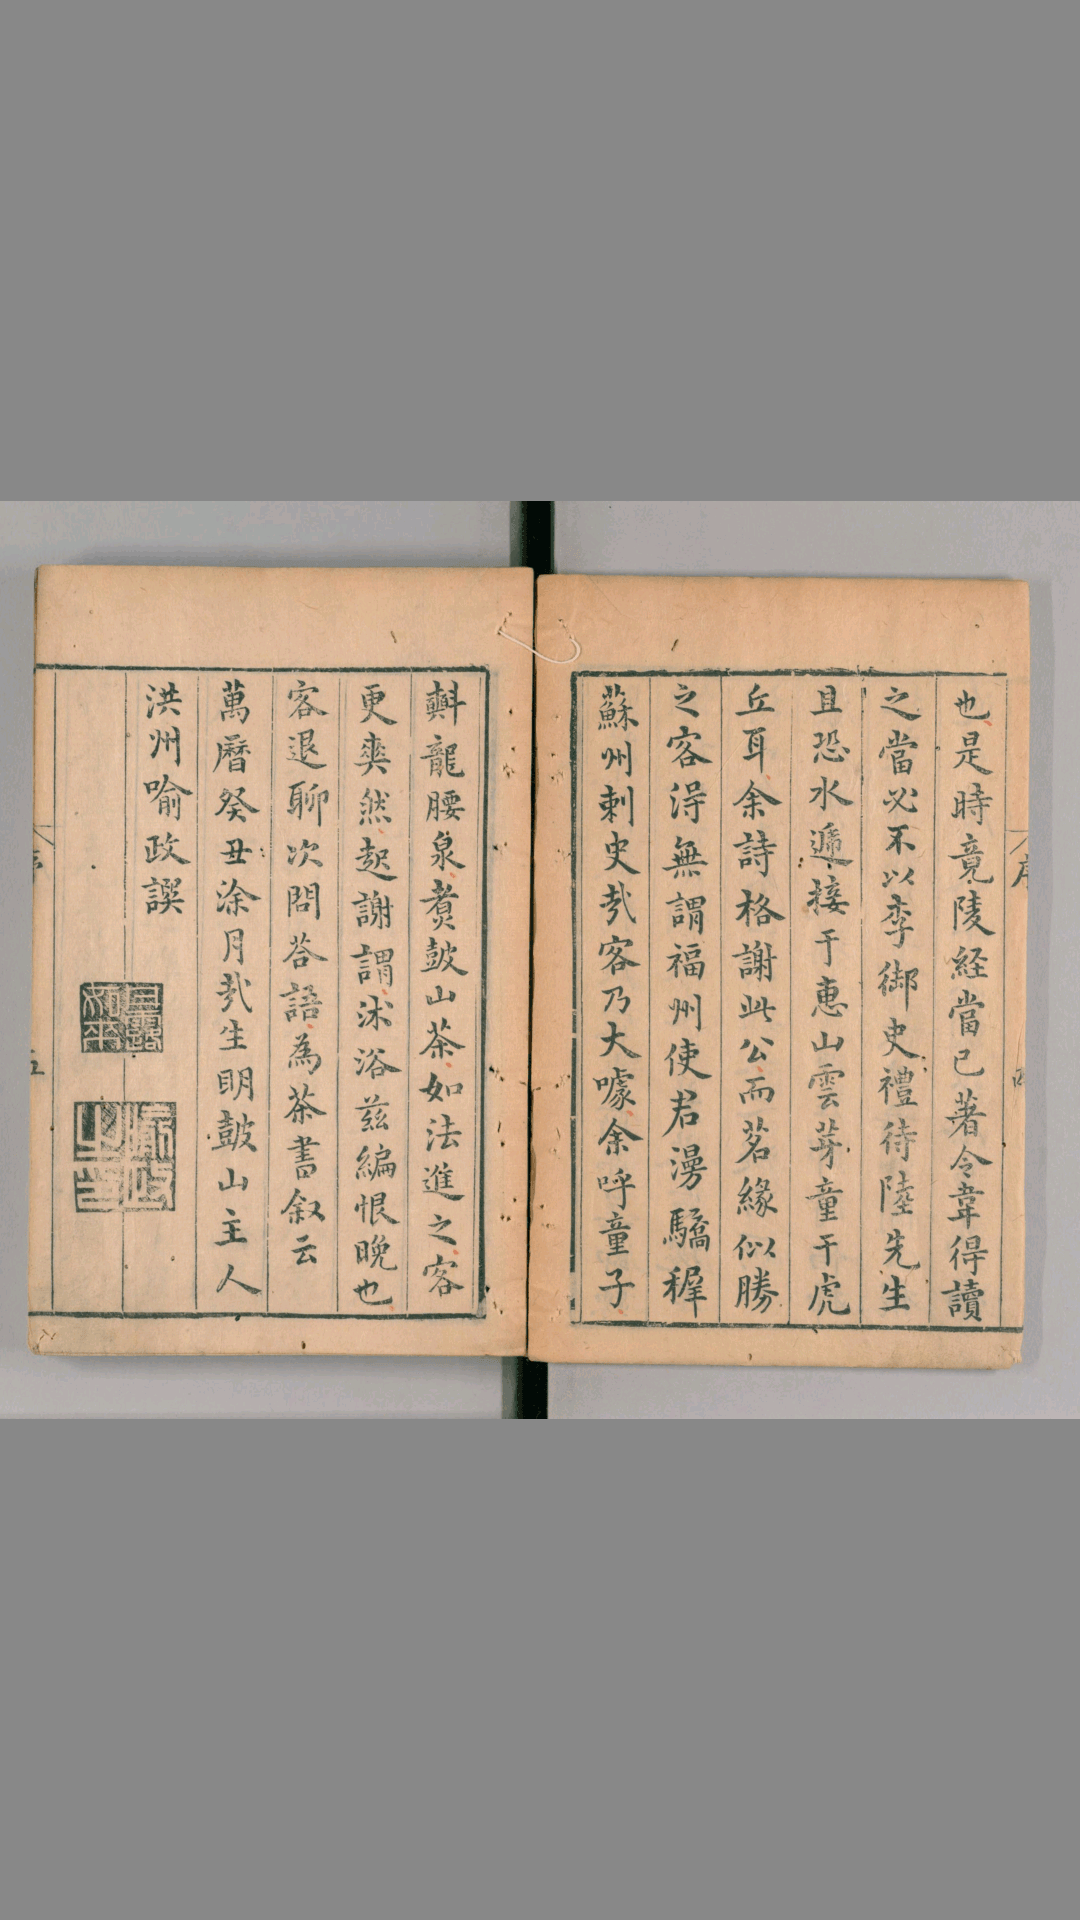 也是時竟陵経當已著令韋得讀
之當必不以李御史禮待陸先生
且恐水遞接于惠山雲芽童于虎
丘耳余詩格謝此公而茗緣似勝
之客得無謂福州使君漫驕穉
蘇州刺史哉客乃大噱余呼童子
𣂏龍腰泉煮鼓山茶如法進之客
更爽然起謝謂沐浴茲編恨晚也
客退聊次問荅語為茶書叙云
萬曆癸丑涂月哉生明鼓山主人
洪州喻政譔
序
五